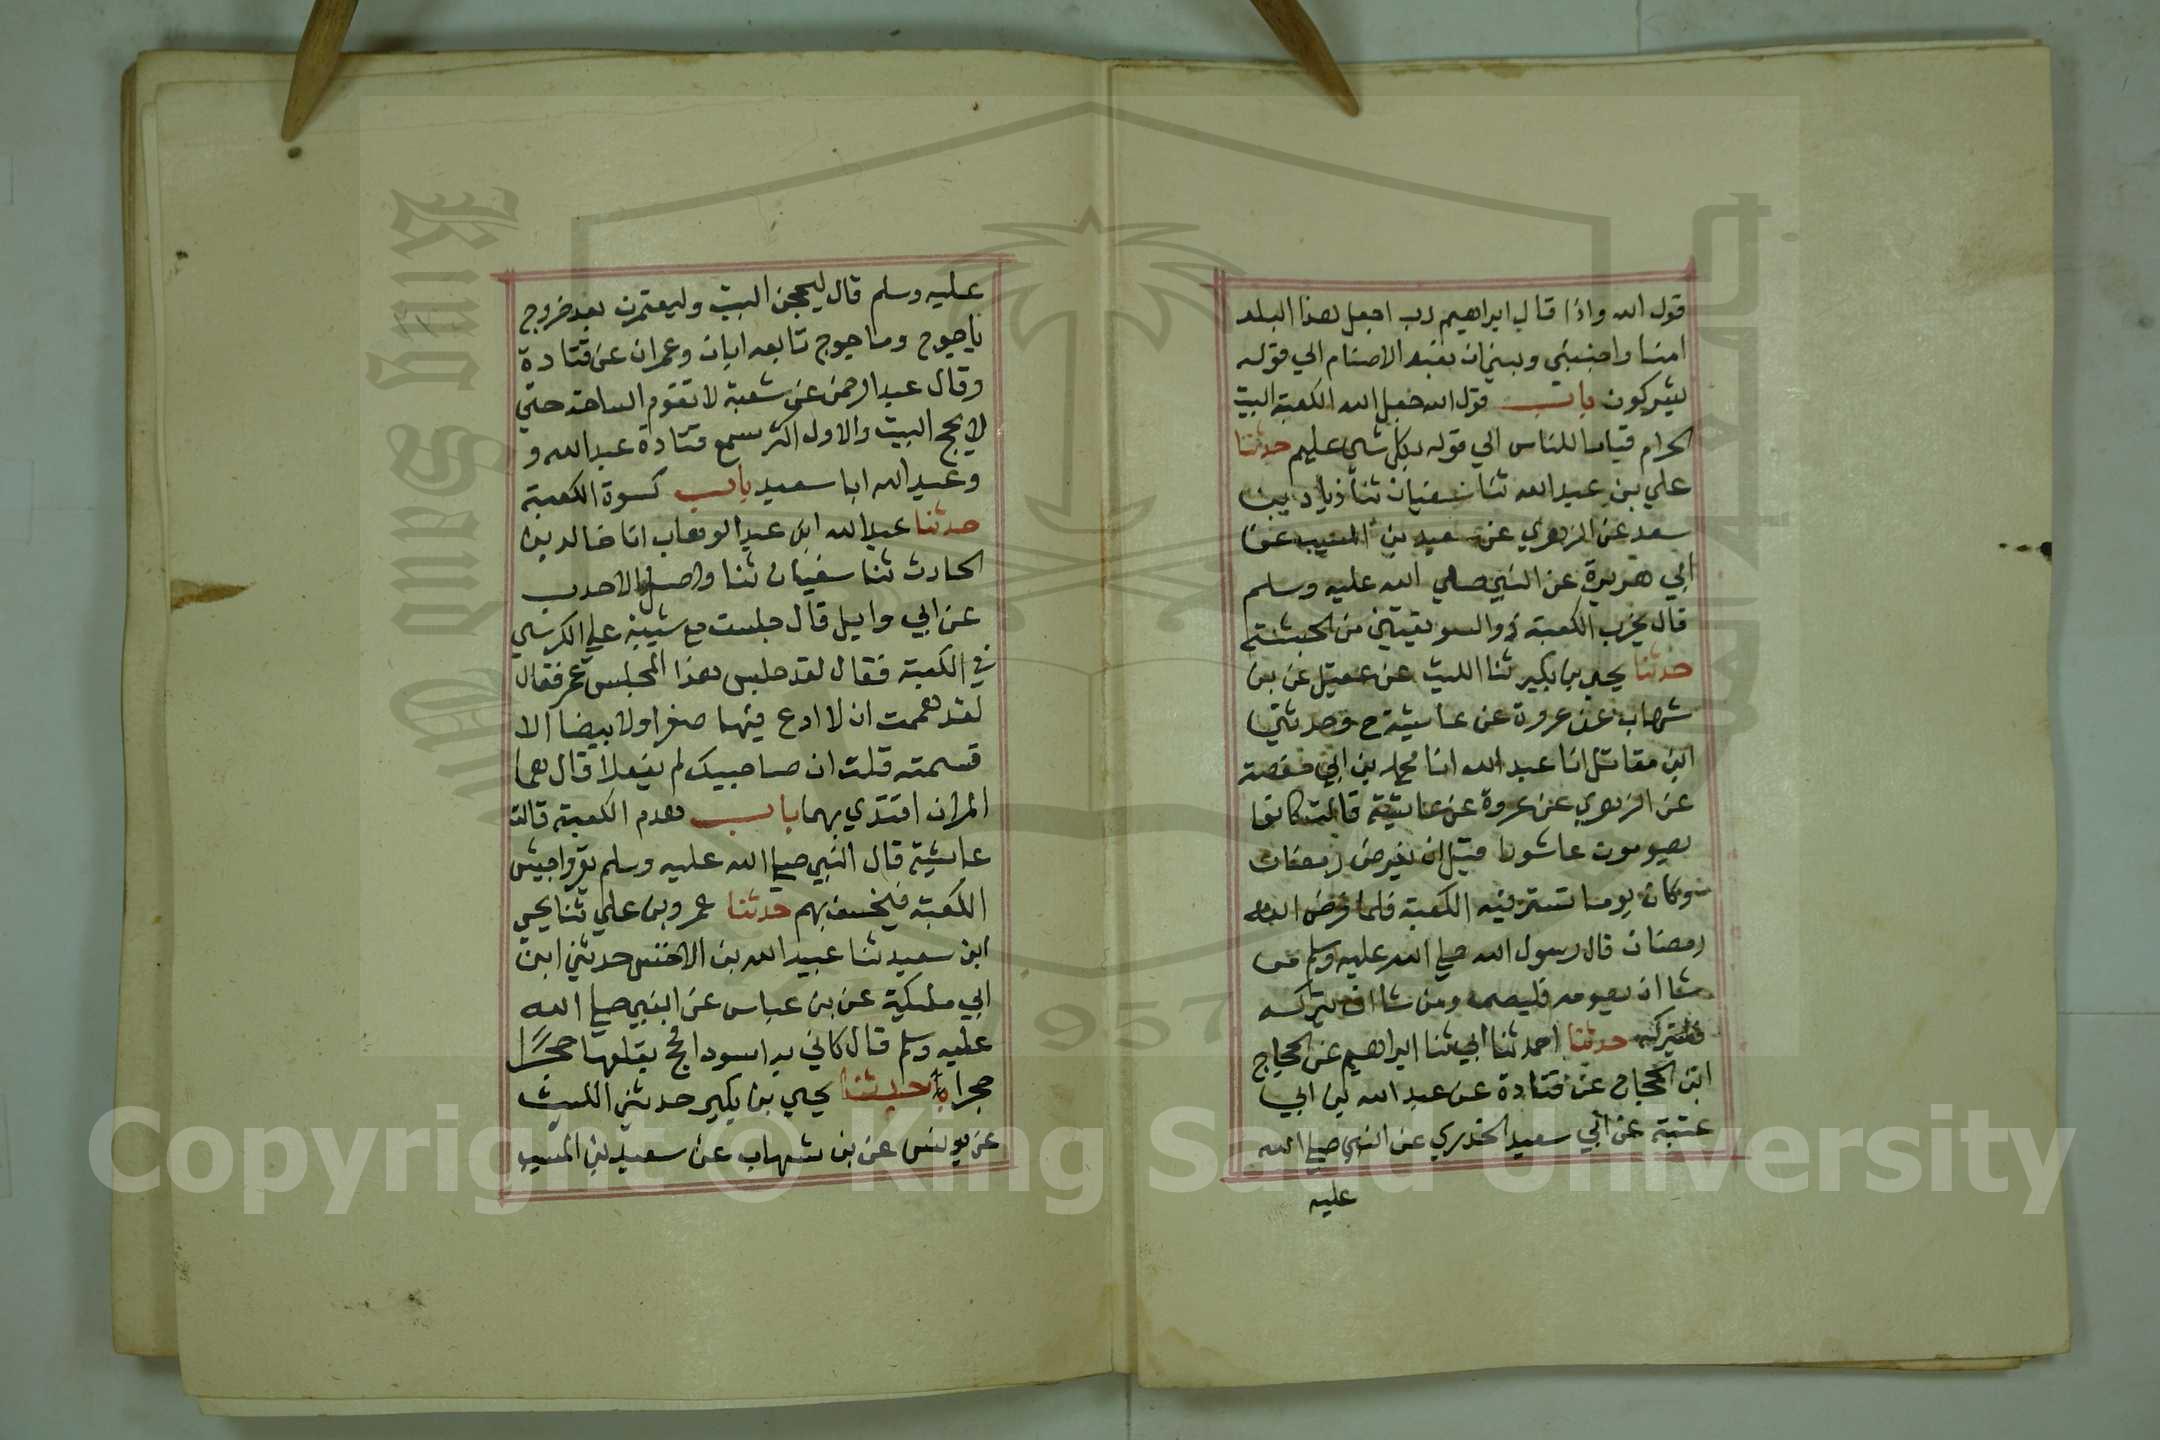 قول الله واذا قال ابراهيم رب اجعل هذا البلد
امنا واجنبني وبني ان نعبد الاصنام الي قوله
يشركون باب قول الله جعل الله الكعبة البيت
الحرام قياما للناس الي قوله بكل شي عليم حدثنا
علي بن عبد الله ثنا سفيان ثنا زياد بن
سعد عن الزهري عن سعيد بن المسيب عن
ابي هريرة عن النبي صلي الله عليه وسلم
قال يخرب الكعبة ذو السويقتين من الحبشة
حدثنا يحيي بن بكير ثنا الليث عن عقيل عن بن
شهاب عن عروة عن عايشة ح وحدثني
ابن مقاتل انا عبد الله انا محمد بن ابي حفصة
عن الزهري عن عروة عن عايشة قالت كانوا
يصومون عاشورا قبل ان يفرض رمضان
وكان يوما تستر فيه الكعبة فلما فرض الله
رمضان قال رسول الله صلي الله عليه وسلم من
شا ان يصومه فليصمه ومن شا ان يتركه
فليتركه حدثنا احمد ثنا ابي ثنا ابراهيم عن الحجاج
ابن الحجاج عن قتادة عن عبد الله بن ابي
عتبة عن ابي سعيد الخدري عن النبي صلي الله
عليه
عليه وسلم قال ليحجن البيت وليعتمرن بعد خروج
ياجوج وماجوج تابعه ابان وعمران عن قتادة
وقال عبد الرحمن عن شعبة لا تقوم الساعة حتي
لا يحج البيت والاول اكثر سمع قتادة عبد الله و
وعبد الله ابا سعيد باب كسوة الكعبة
حدثنا عبد الله ابن عبد الوهاب انا خالد بن
الحارث ثنا سفيان ثنا واصل الاحدب
عن ابي وايل قال جلست مع شيبة علي الكرسي
في الكعبة فقال لقد جلس هذا المجلس عمر فقال
لقد هممت ان لا ادع فيها صفرا ولا بيضا الا
قسمته قلت ان صاحبيك لم يفعلا قال هما
المران اقتدي بهما باب هدم الكعبة قالت
عايشة قال النبي صلي الله عليه وسلم يغزوا جيش
الكعبة فيخسف بهم حدثنا عمرو بن علي ثنا يحيي
ابن سعيد ثنا عبيد الله بن الاخنس حدثني ابن
ابي مليكة عن بن عباس عن النبي صلي الله
عليه وسلم قال كاني به اسود افحج يقلعها حجرا
حجرا حدثنا يحيي بن بكير حدثني الليث
عن يونس عن بن شهاب عن سعيد بن المسيب
King Saud University
1957
Copyright © King Saud University